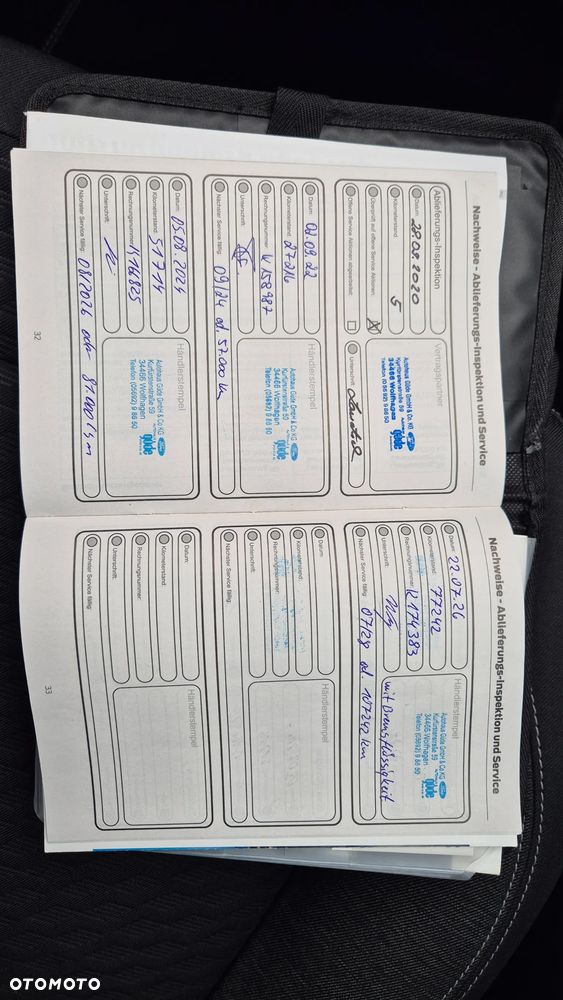 Nachweise - Ablieferungs-Inspektion und Service
Ablieferungs-Inspektion
Datum: 28.08.2020
Kilometerstand: 5
Überprüft auf offene Service Aktionen: X
Offene Service Aktionen abgearbeitet:
Vertragspartner
Autohaus Güde GmbH & Co KG
Kurfürstenstraße 59
34466 Wolfhagen
Telefon (05692) 9 86 50
güde
Unterschrift:
Datum: 02.09.22
Kilometerstand: 27216
Rechnungsnummer: K158987
Unterschrift:
Nächster Service fällig: 09/24 od. 57.000 km
Händlerstempel
Autohaus Güde GmbH & Co KG
Kurfürstenstraße 59
34466 Wolfhagen
Telefon (05692) 9 86 50
güde
Datum: 05.08.2024
Kilometerstand: 51714
Rechnungsnummer: K116825
Unterschrift:
Nächster Service fällig: 08/2026 oder 81.000 km
Händlerstempel
Autohaus Güde GmbH & Co KG
Kurfürstenstraße 59
34466 Wolfhagen
Telefon (05692) 9 86 50
güde
32
Nachweise - Ablieferungs-Inspektion und Service
Datum: 22.07.26
Kilometerstand: 77242
Rechnungsnummer: K174383
Unterschrift:
mit Bremsflüssigkeit
Nächster Service fällig: 07/28 od. 107242 km
Händlerstempel
Autohaus Güde GmbH & Co KG
Kurfürstenstraße 59
34466 Wolfhagen
Telefon (05692) 9 86 50
güde
Datum:
Kilometerstand:
Rechnungsnummer:
Unterschrift:
Nächster Service fällig:
Händlerstempel
Datum:
Kilometerstand:
Rechnungsnummer:
Unterschrift:
Nächster Service fällig:
Händlerstempel
33
OTOMOTO